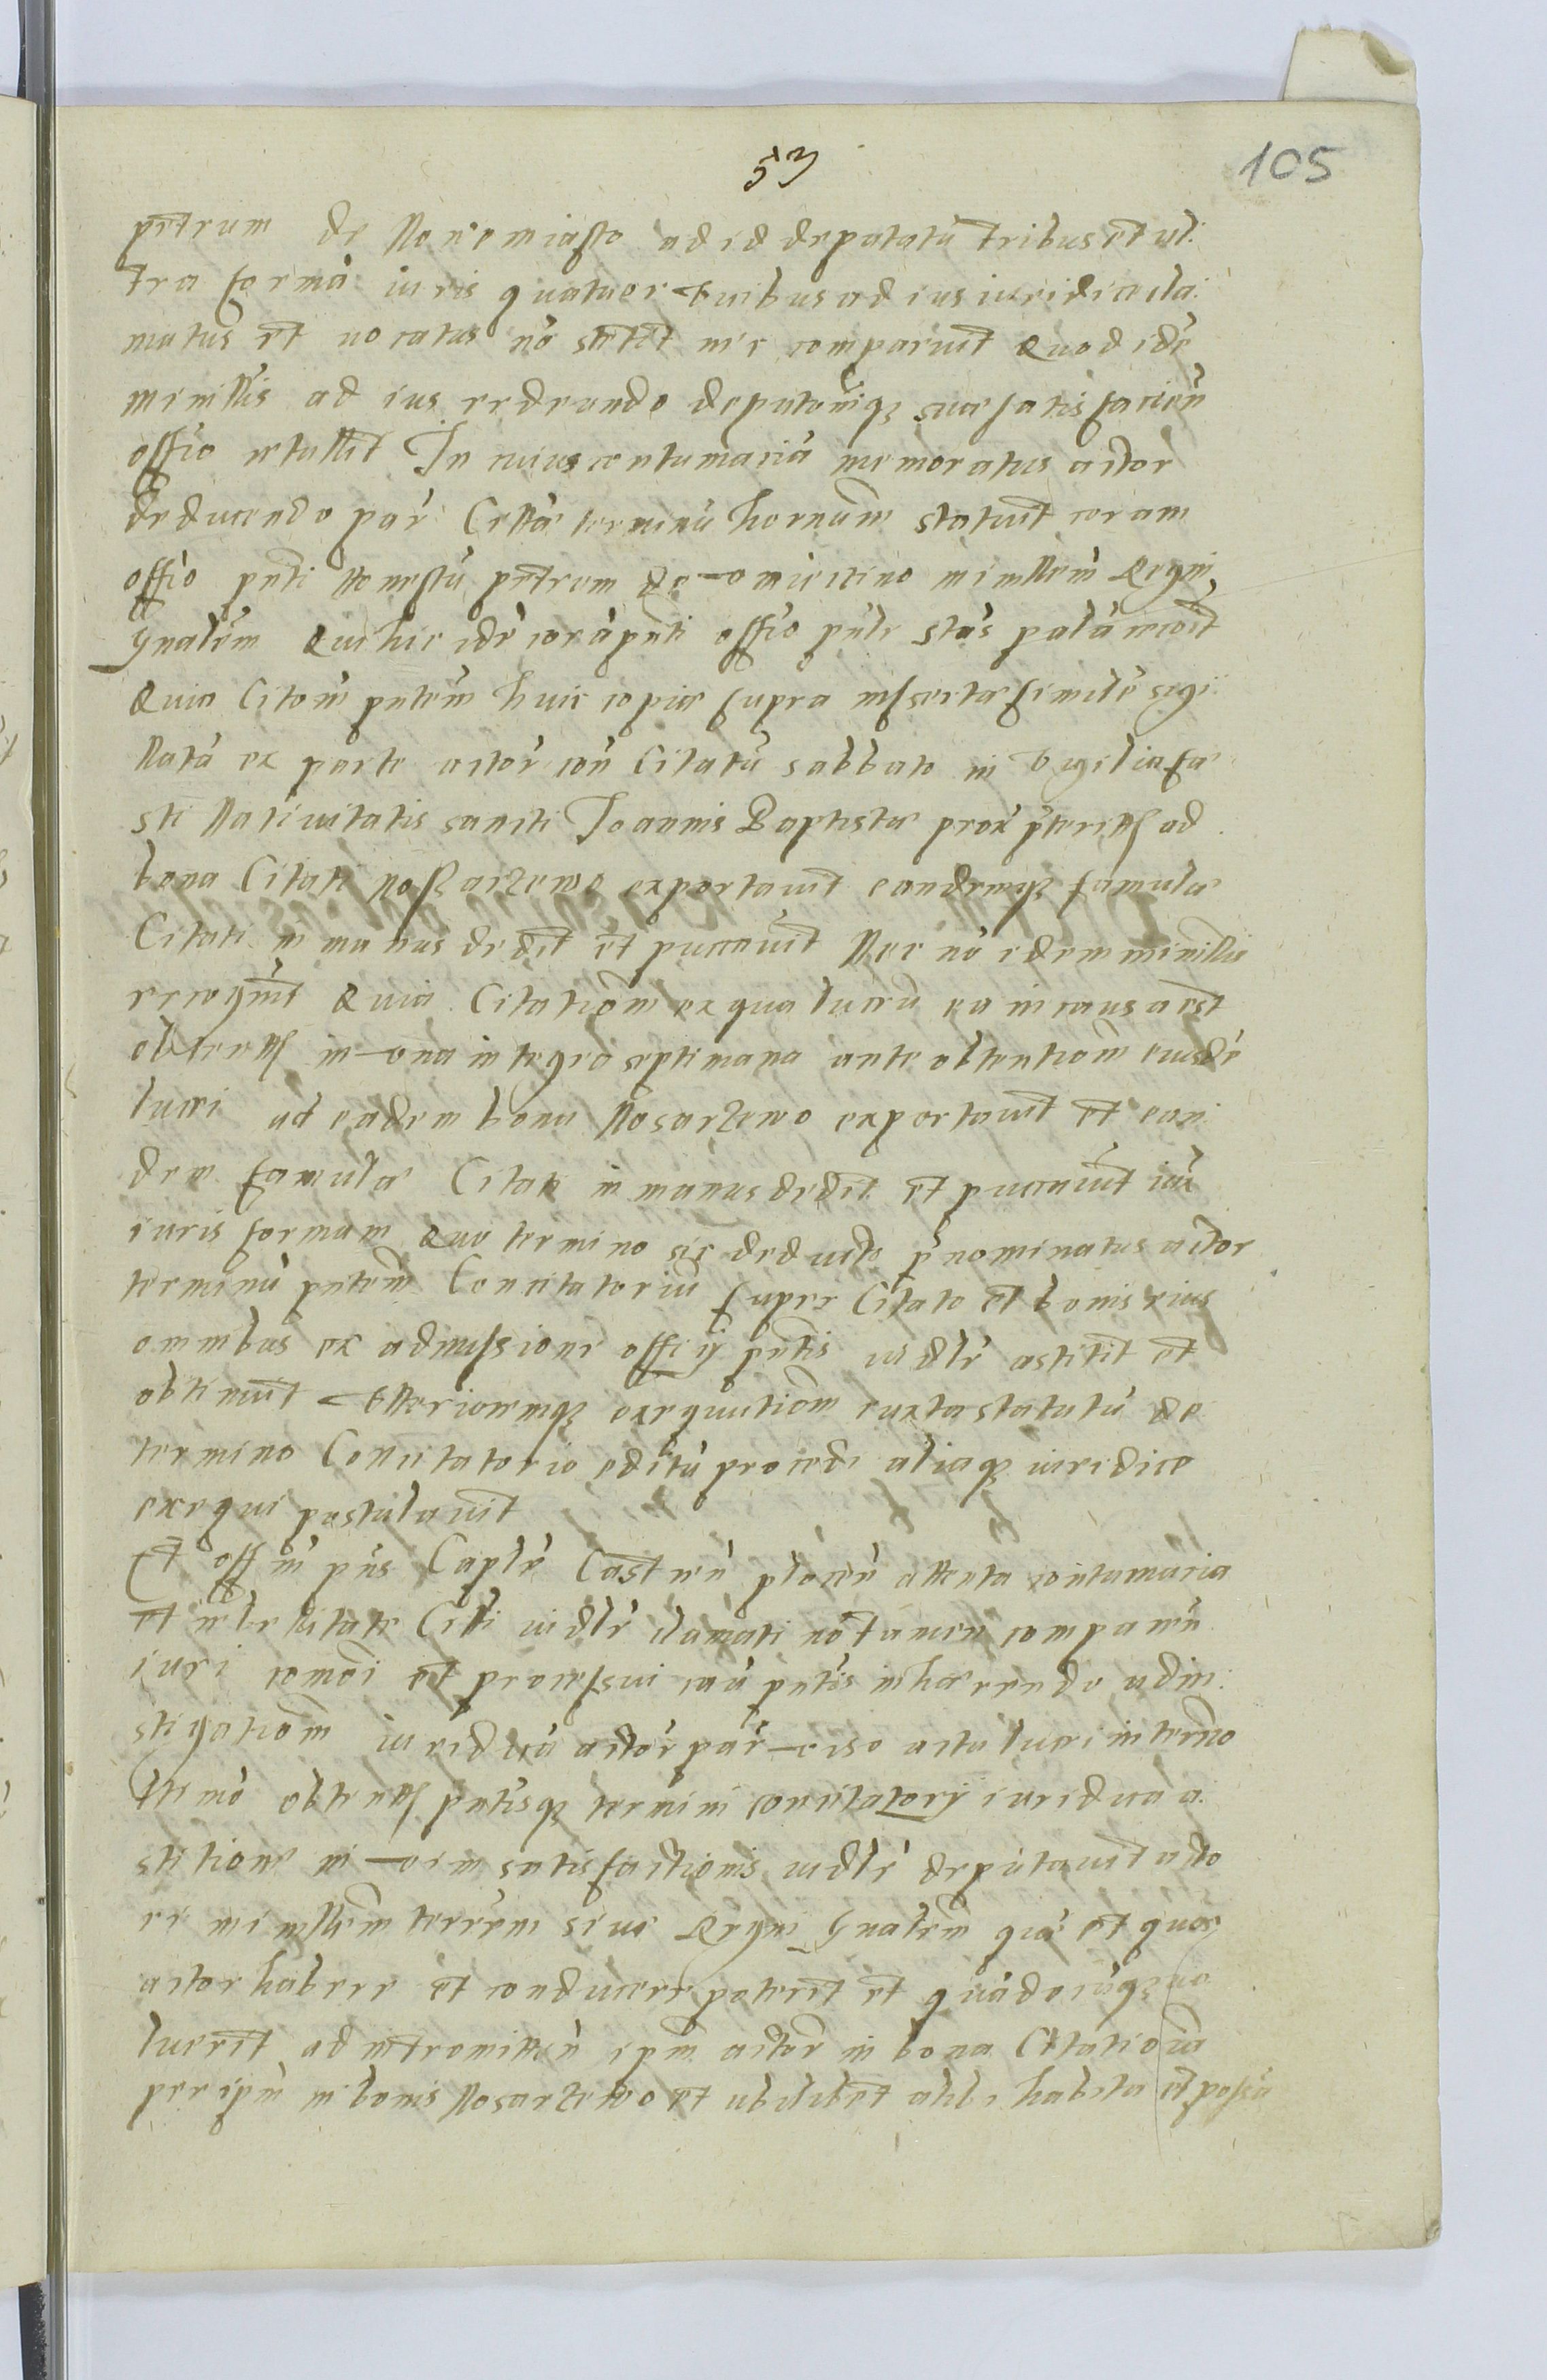 53
105
petrum de Nowemiasto ad id deputatũ tribus et ul:
tra formã iuris quatuor vicibus ad ius iuridice cla:
matus et vocatus nõ stetit nec comparuit Quod idẽ
Minister̃ ad ius redeundo deputoniq; suae satisfacien̄
offĩo retulit In cuius contumaciã memoratus actor
deducendo par̃ Citta terminũ hornum̃ statuit coram
offĩo pnti Honestũ petrum de minister̃m Regni
gnalem Qui hic idẽ corã pnti offĩo pnlr stãs palã recoit
Quia Citom̃ pntem̃ huic copiae supra insertae similẽ sigi:
llatã ex parte actor̃ con̄ Citatũ sabbato in vigilia fe:
sti Natiuitatis sancti Joannis Baptistae prox̃ pteriti ad
bona Citati Nossarzewo exportauit eandemq; famulae
Citati in manus dedit et puccauit Nec nõ idem minister
recognit Quia Citatiom̃ ex qua lucrũ ea in causa est
obtent in vna integro septimana ante obtentiom̃ eiusdẽ
lucri ad eadem bona Nosarzewo exportauit et ean:
dem famulae Citati in manus dedit et puccauit iux̃
iuris formam Quo termino sic deducto p̃nominatus actor
terminũ pntem̃ Concitatoriũ super Citato et bonis eius
omnibus ex admissione officij pntis iudlr̃ astitit et
obtinuit vlterioremq; exequutiom̃ iuxta statutũ de
termino Concitatorio editũ procedi aliaq; iuridice
exequi postulauit
Et offm̃ pns Caplẽ Castren̄ plocen̄ attenta contumacia
et rebellitate Citti iudlr̃ clamati nõ tamen comparen̄
iuri comõi et processui cau pntis inhaerendo ad in:
stigatiom̃ iuridicã actor̃ par̃ viso actu lucri in termo
obtent pntisq; termini concitatorij iuridica a:
stitione in vim satisfactionis iudlr̃ deputauit acto
ri ministerm̃ terrem̃ siue Regni Gnalem̃ quẽ et quos
actor habere et conducere poterit et quãdocũq; vo
luerit ad intromitten̄ ipm̃ actor̃ in bona Citati om̃ia
per ipm̃ in bonis Nosarzewo et ubilibet alibi habita et possa